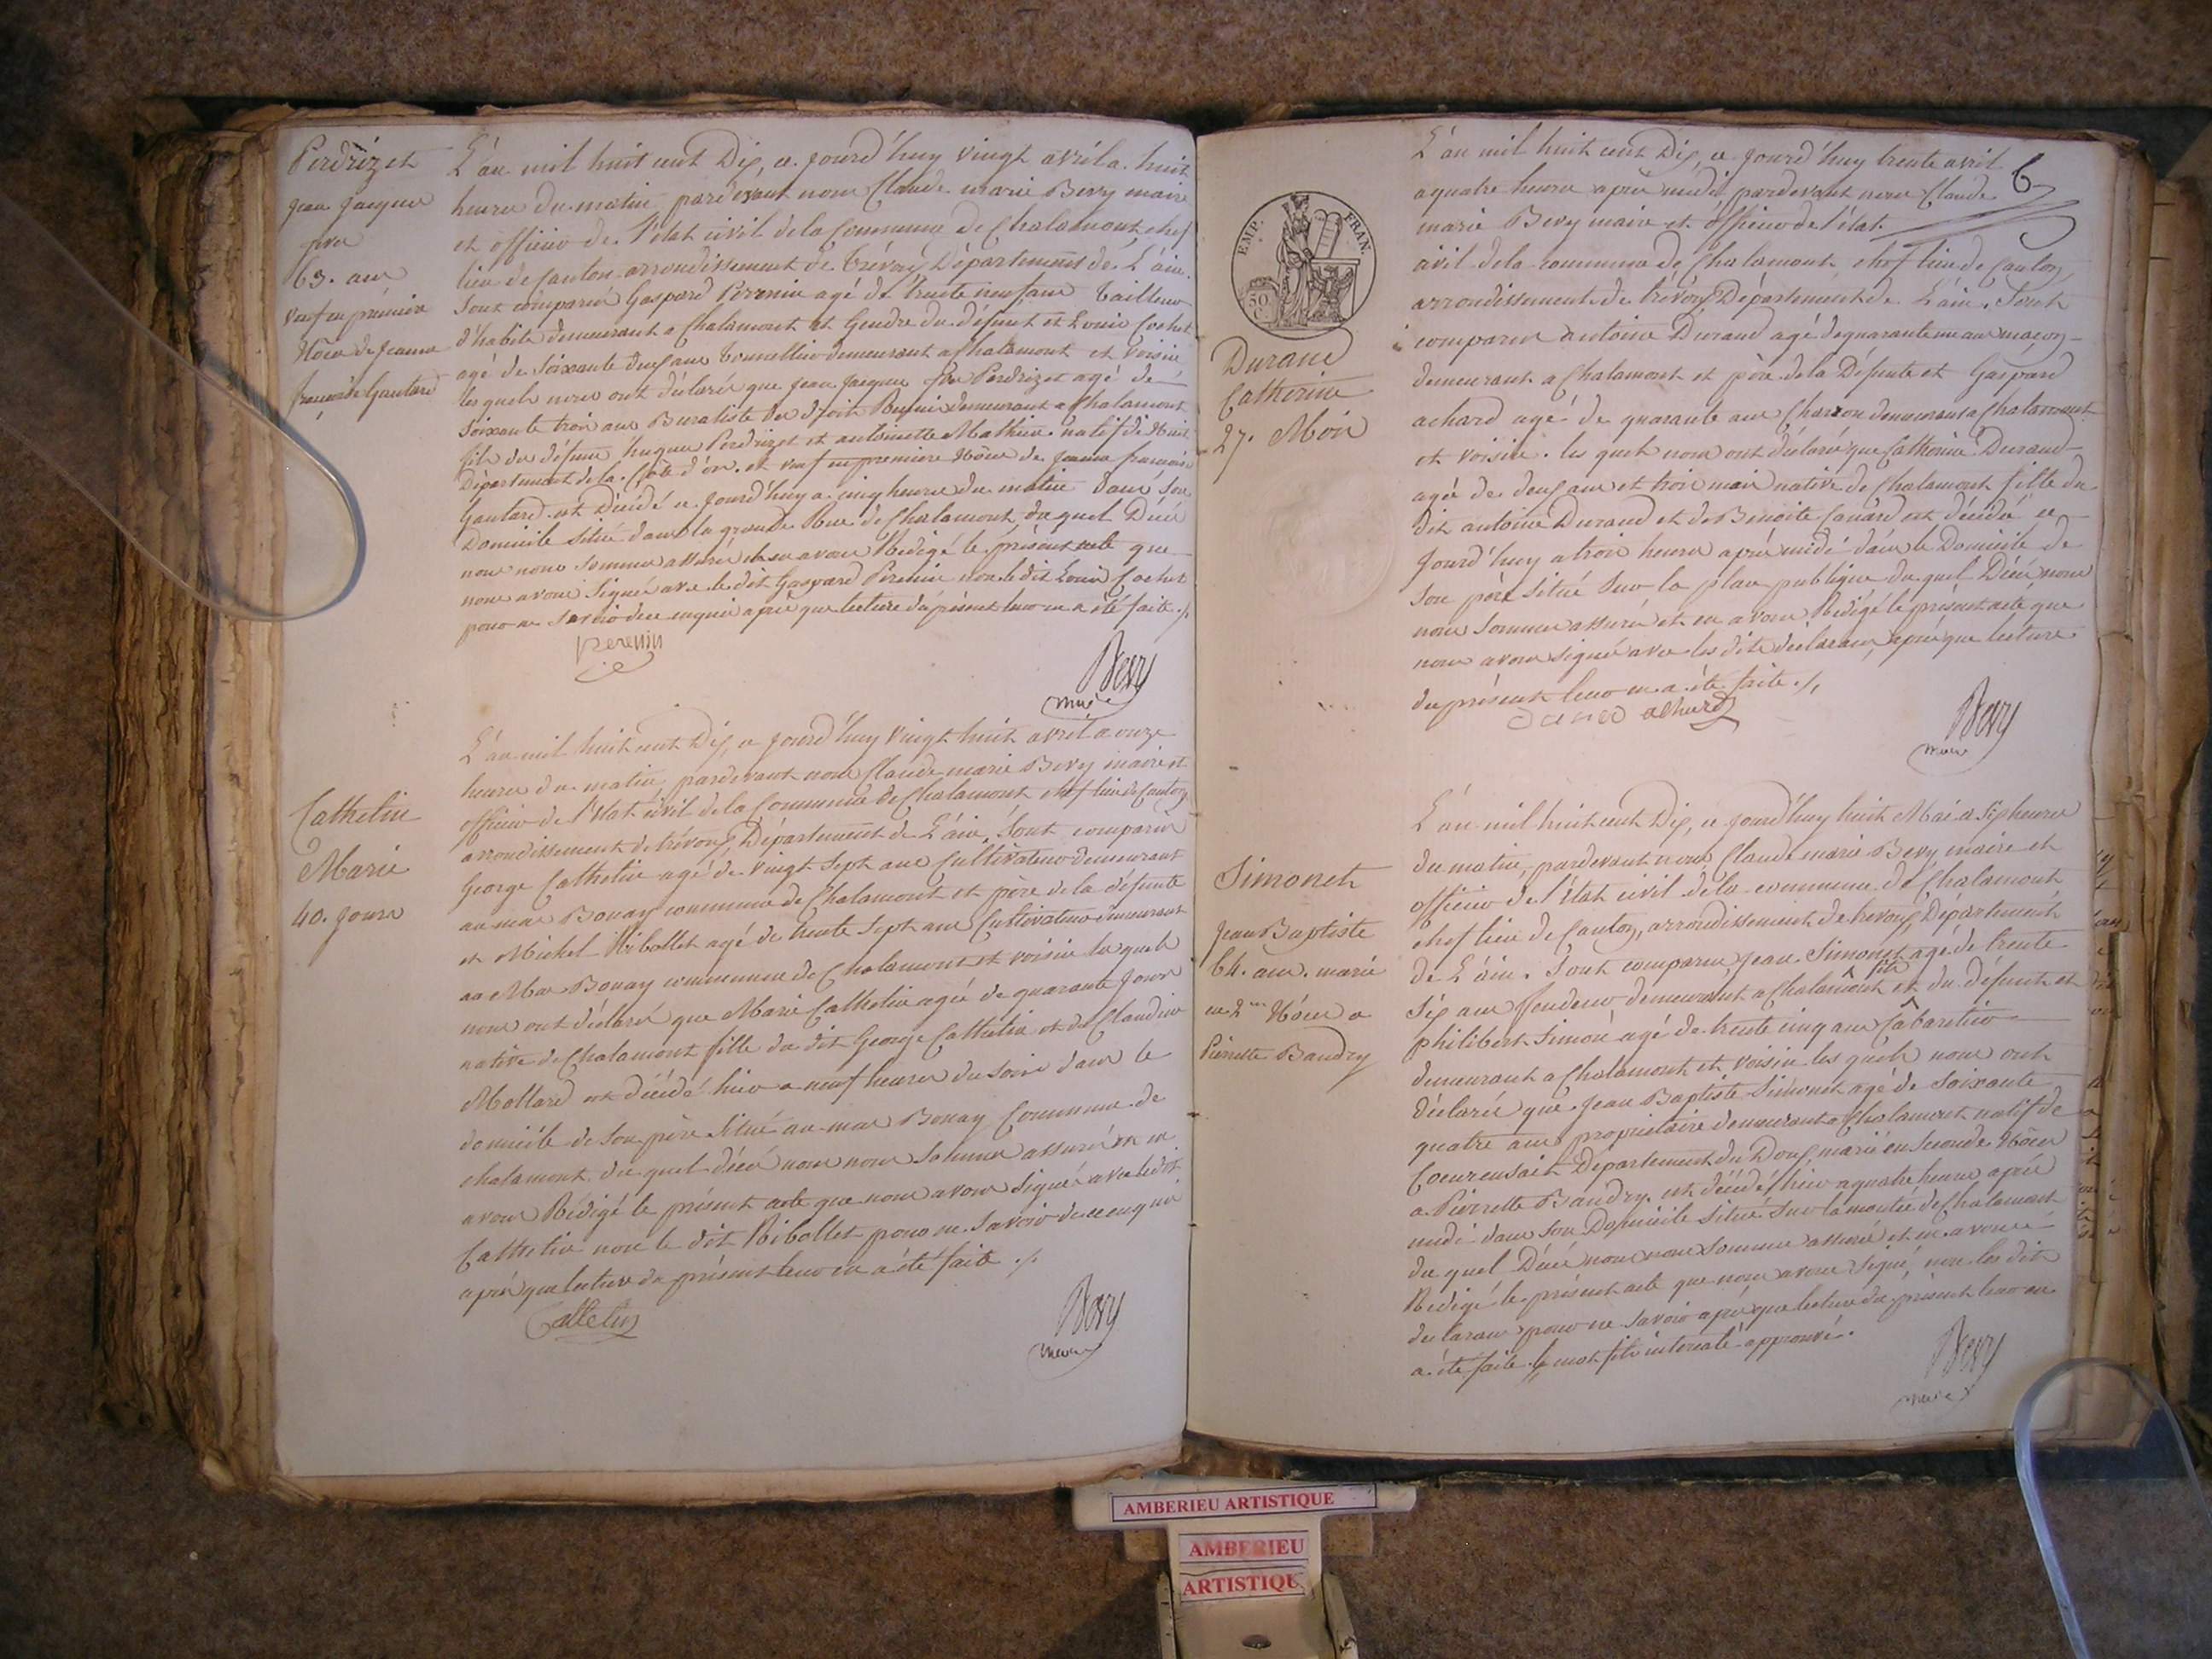 Perdrizet
Jean Jacques
63. ans
veuf en première
Nôces de Jeanne
françoise Gautard
L'an mil huit cent Dix, ce Jourd'huy vingt avril a huit
heures du matin pardevant nous Claude marie Bevy maire
et officier de l'état civil de la Commune de Chalamont chef
lieu de Canton arrondissement de trévoux Département de L'ain.
Sont comparus Gaspard Perenin agé de trente neuf ans tailleur
d'habits demeurant a Chalamont et Gendre du défunt et Louis Cochet
agé de soixante deux ans tonnellier demeurant a Chalamont et voisin
les quels nous ont déclaré que Jean Jacques Perdrizet agé de
soixante trois ans Buraliste des droits Reunis demeurant a Chalamont
fils du défunt hugue Perdrizet et antoinette Mathieu natif de
Département de la Côte d'or. et veuf en premiere Nôces de Jeanne francoise
Gautard est Décédé ce Jourd'huy a cinq heures du matin dans son
Domicile situé dans la grande Rue de Chalamont, du quel Décès
nous nous sommes assurés et en avons Rédigé le présent acte que
nous avons signé avec le dit Gaspard Perenin non le dit Louis Cochet
pour ne savoir de ce enquis après que lecture du présent leur en a été faite ./.
perenin
Bevy
maire
Cathelin
Marie
40. Jours
L'an mil huit cent Dix, ce Jourd'huy vingt huit avril a onze
heures du matin, pardevant nous Claude marie Bevy maire et
officier de l'état civil de la Commune de Chalamont chef lieu de Canton
arrondissement de trévoux, Département de L'ain. Sont comparus
George Cathelin agé de vingt sept ans Cultivateur demeurant
au mas Bonay commune de Chalamont et père de la défunte
et Michel Ribollet agé de trente sept ans Cultivateur demeurant
au Mas Bonay commune de Chalamont et voisin les quels
nous ont déclaré que Marie Cathelin agée de quarante Jours
native de Chalamont fille du dit George Cathelin et de Claudine
Mollard est décédé hier a neuf heures du soir dans le
domicile de son père situé au mas Bonay Commune de
chalamont, du quel décès nous nous sommes assurés et en
avons Rédigé le présent acte que nous avons signé avec le dit
Cathelin non le dit Ribollet pour ne savoir de ce enquis
après que lecture du présent leur en a été faite ./.
Cattelin
Bevy
maire
6
EMP. FRAN.
50 C.
Durand
Catherine
27. Mois
L'an mil huit cent Dix, ce Jourd'huy trente avril
a quatre heures après midi, pardevant nous Claude
marie Bevy maire et officier de l'état
civil de la commune de Chalamont chef lieu de Canton
arrondissement de trévoux Département de L'ain. Sont
comparus antoine Durand agé de quarante un ans maçon
demeurant a Chalamont et père de la Défunte et Gaspard
achard agé de quarante ans Charron demeurant a Chalamont
et voisin. les quels nous ont déclaré que Catherine Durand
agée de deux ans et trois mois native de Chalamont fille du
dit antoine Durand et de Benoite Canard est décédé ce
Jourd'huy a trois heures après midi dans le Domicile de
son père situé sur la place publique du quel Décès nous
nous sommes assurés et en avons Rédigé le présent acte que
nous avons signé avec les dits déclarans, après que lecture
du présent leur en a été faite ./.
achard
Bevy
maire
Simonet
Jean Baptiste
64. ans. marié
en 2me Nôces a
Pierrette Baudry
L'an mil huit cent Dix, ce Jourd'huy huit Mai a six heures
du matin, pardevant nous Claude marie Bevy maire et
officier de l'état civil de la commune de Chalamont
chef lieu de Canton, arrondissement de trevoux, Département
de L'ain. Sont comparus Jean Simonet agé de trente
six ans fendeur demeurant a Chalamont et fils du défunt et
philibert Simon agé de trente cinq ans Cabaretier
demeurant a Chalamont et voisin les quels nous ont
déclaré que Jean Baptiste Simonet agé de soixante
quatre ans propriétaire demeurant a Chalamont natif de
Département du Doux marié en seconde Nôces
a Pierrette Baudry. est décédé hier a quatre heures après
midi dans son Domicile situé sur la montée de Chalamont
du quel Décès nous nous sommes assurés et en avons
Rédigé le présent acte que nous avons signé, non les dits
déclarans pour ne savoir après que lecture du présent leur en
a été faite le mot fils interealé approuvé.
Bevy
maire
AMBERIEU ARTISTIQUE
AMBERIEU
ARTISTIQUE